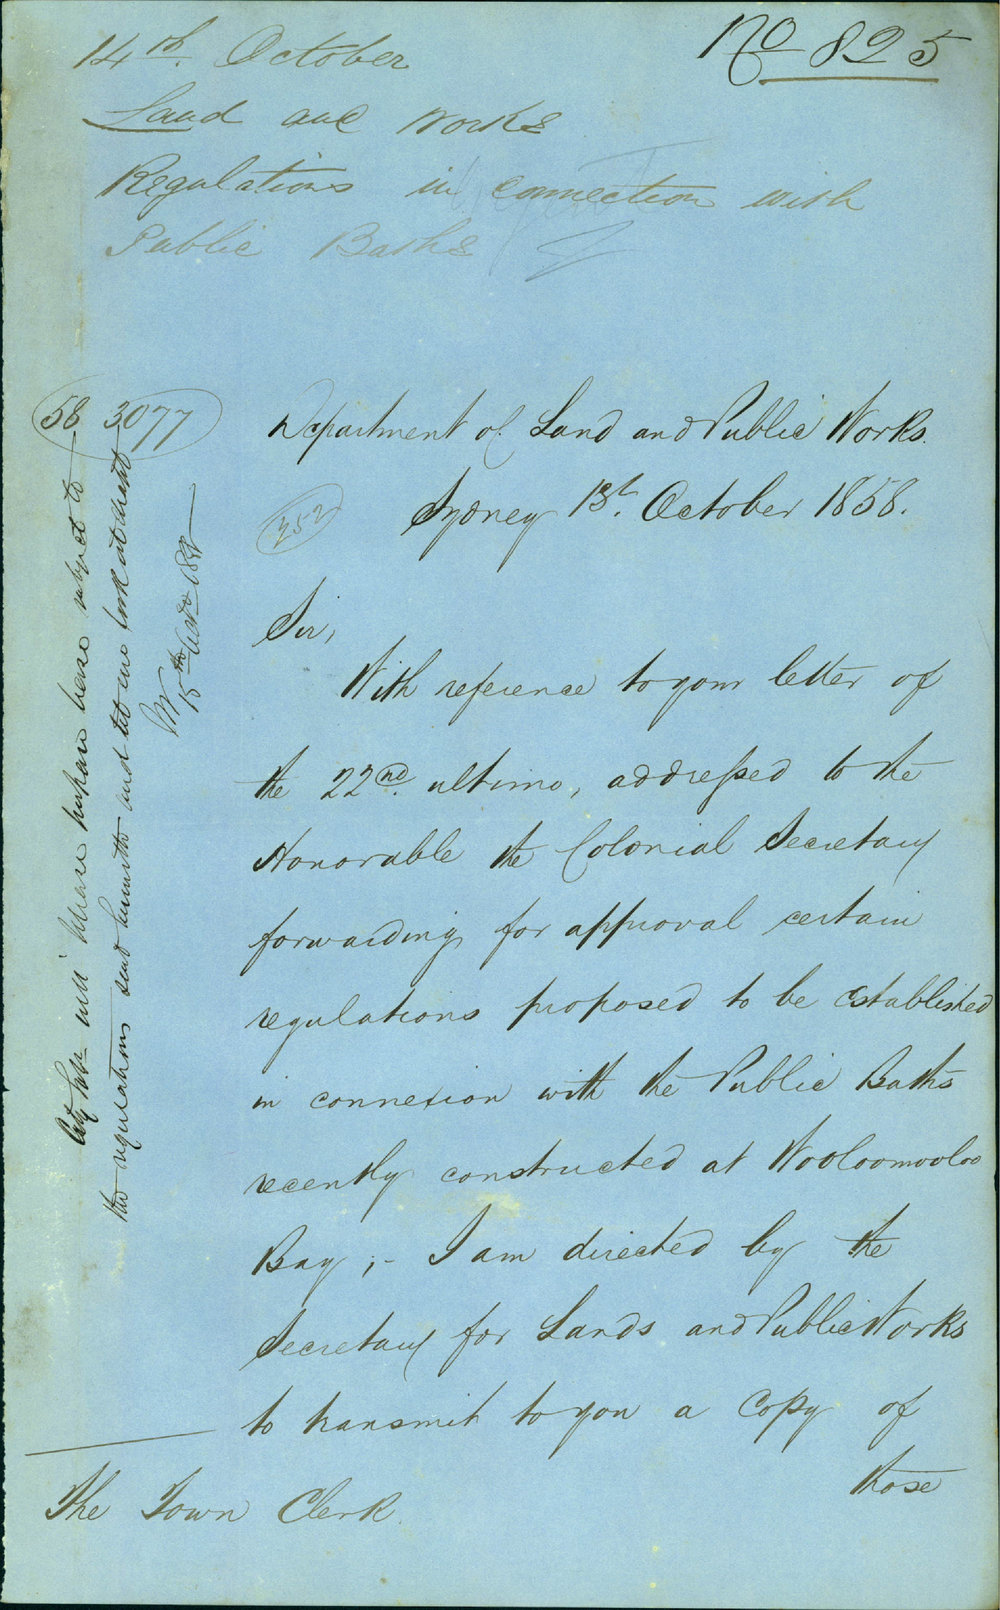 No 825
14th. October
Land and Works
Regulations in connection with
Public Baths
58 3077
Department of Land and Public Works.
352
Sydney 13th. October 1858.
Sir,
With reference to your letter of
the 22nd. ultimo, addressed to the
Honorable the Colonial Secretary
forwarding for approval certain
regulations proposed to be established
in connexion with the Public Baths
recently constructed at Wooloomooloo
Bay ;- I am directed by the
Secretary for Lands and Public Works
to transmit to you a Copy of
those
The Town Clerk.
City will please prepare lease subject to
the regulations sent herewith and let me look at draft
15th Octr 1858